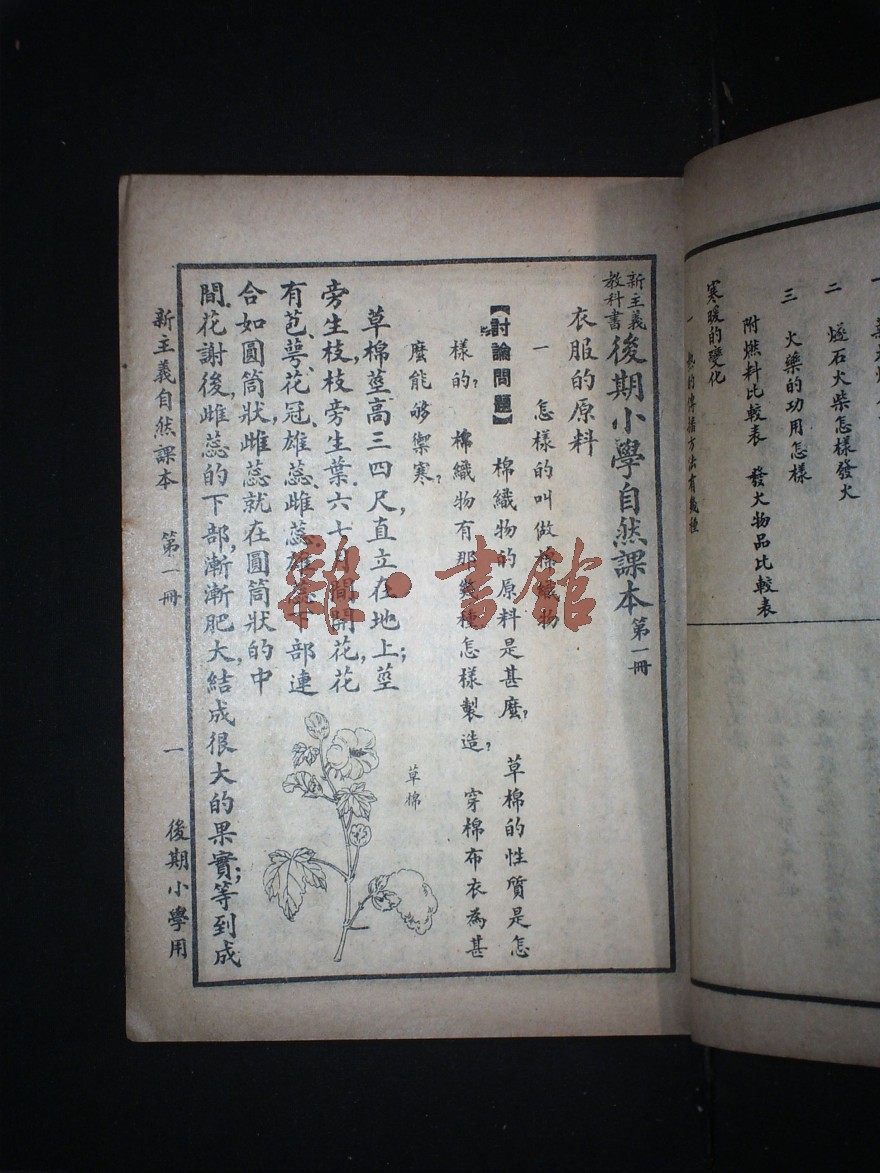 二 燧石火柴怎樣發火
三 火藥的功用怎樣
附燃料比較表 發火物品比較表
寒暖的變化
一 熱的傳播方法有幾種
新主義教科書 後期小學自然課本 第一冊
衣服的原料
一 怎樣的叫做棉織物
【討論問題】 棉織物的原料是甚麼? 草棉的性質是怎
樣的? 棉織物有那幾種?怎樣製造? 穿棉布衣為甚
麼能够禦寒?
草棉莖高三四尺,直立在地上;莖
旁生枝,枝旁生葉.六七月間開花,花
有苞、萼、花冠、雄蕊、雌蕊.雄蕊下部連
合如圓筒狀,雌蕊就在圓筒狀的中
間.花謝後,雌蕊的下部,漸漸肥大,結成很大的果實;等到成
草棉
新主義自然課本 第一冊 一 後期小學用
雜·書館